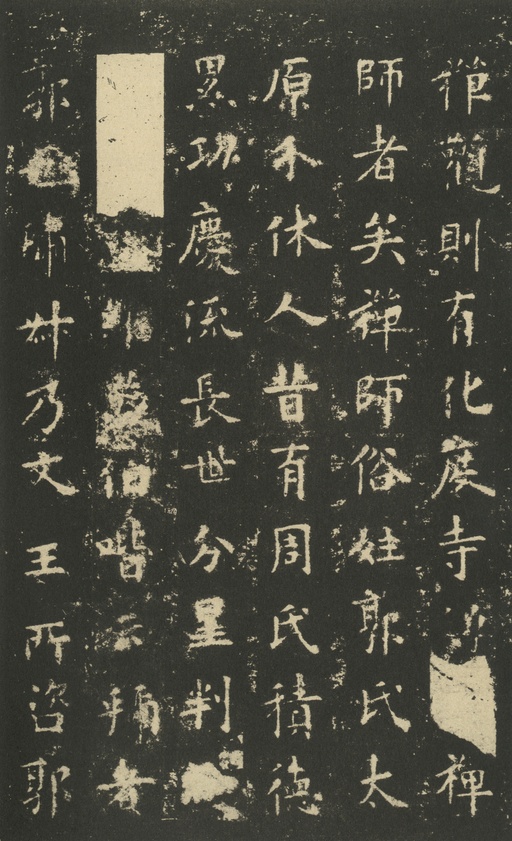 觀則有化度寺禪
師者矣禪師俗姓郭氏太
原介休人昔有周氏積德
累功慶流長世分星判
伯喈云虢者
郭虢叔乃文王所咨郭